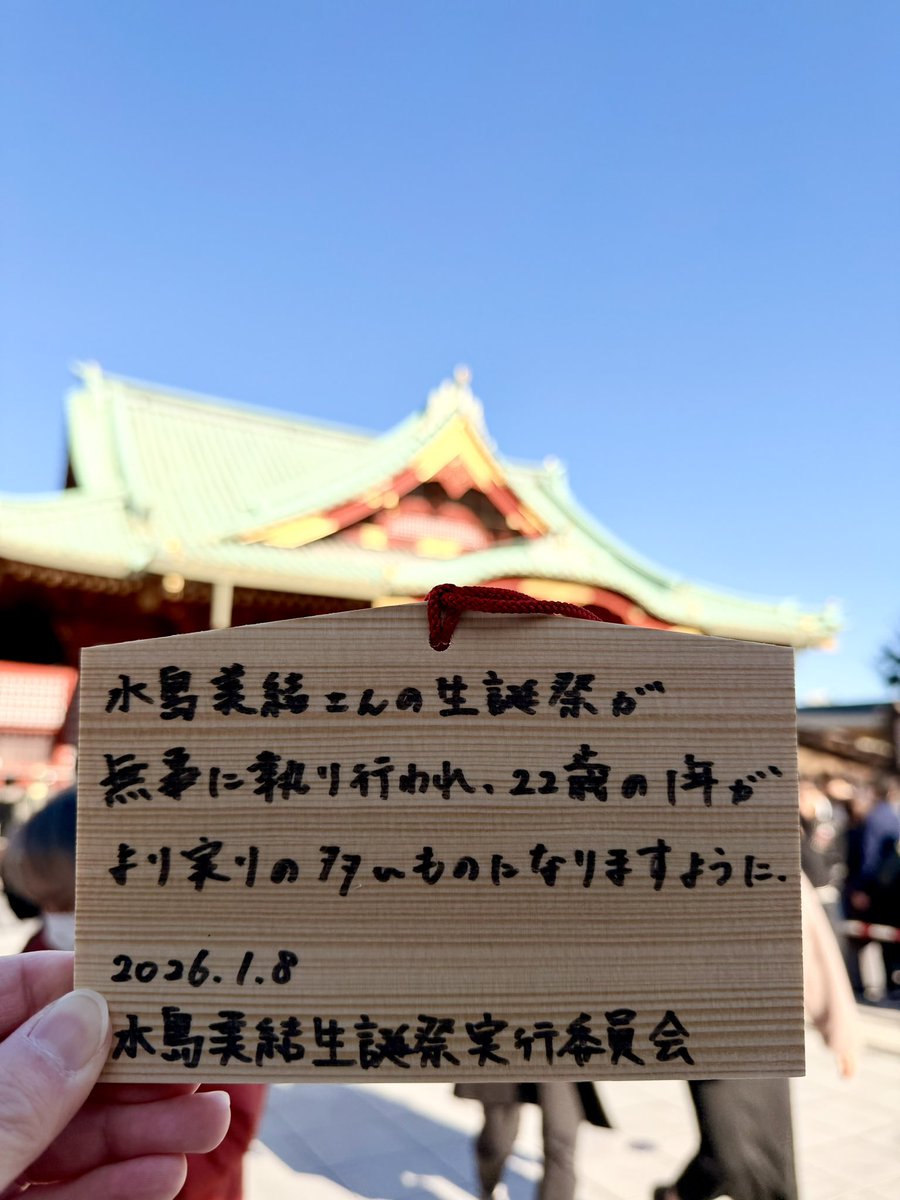 水島美結さんの生誕祭が
無事に執り行われ、22歳の1年が
より実りの多いものになりますように.
2026.1.8
水島美結生誕祭実行委員会